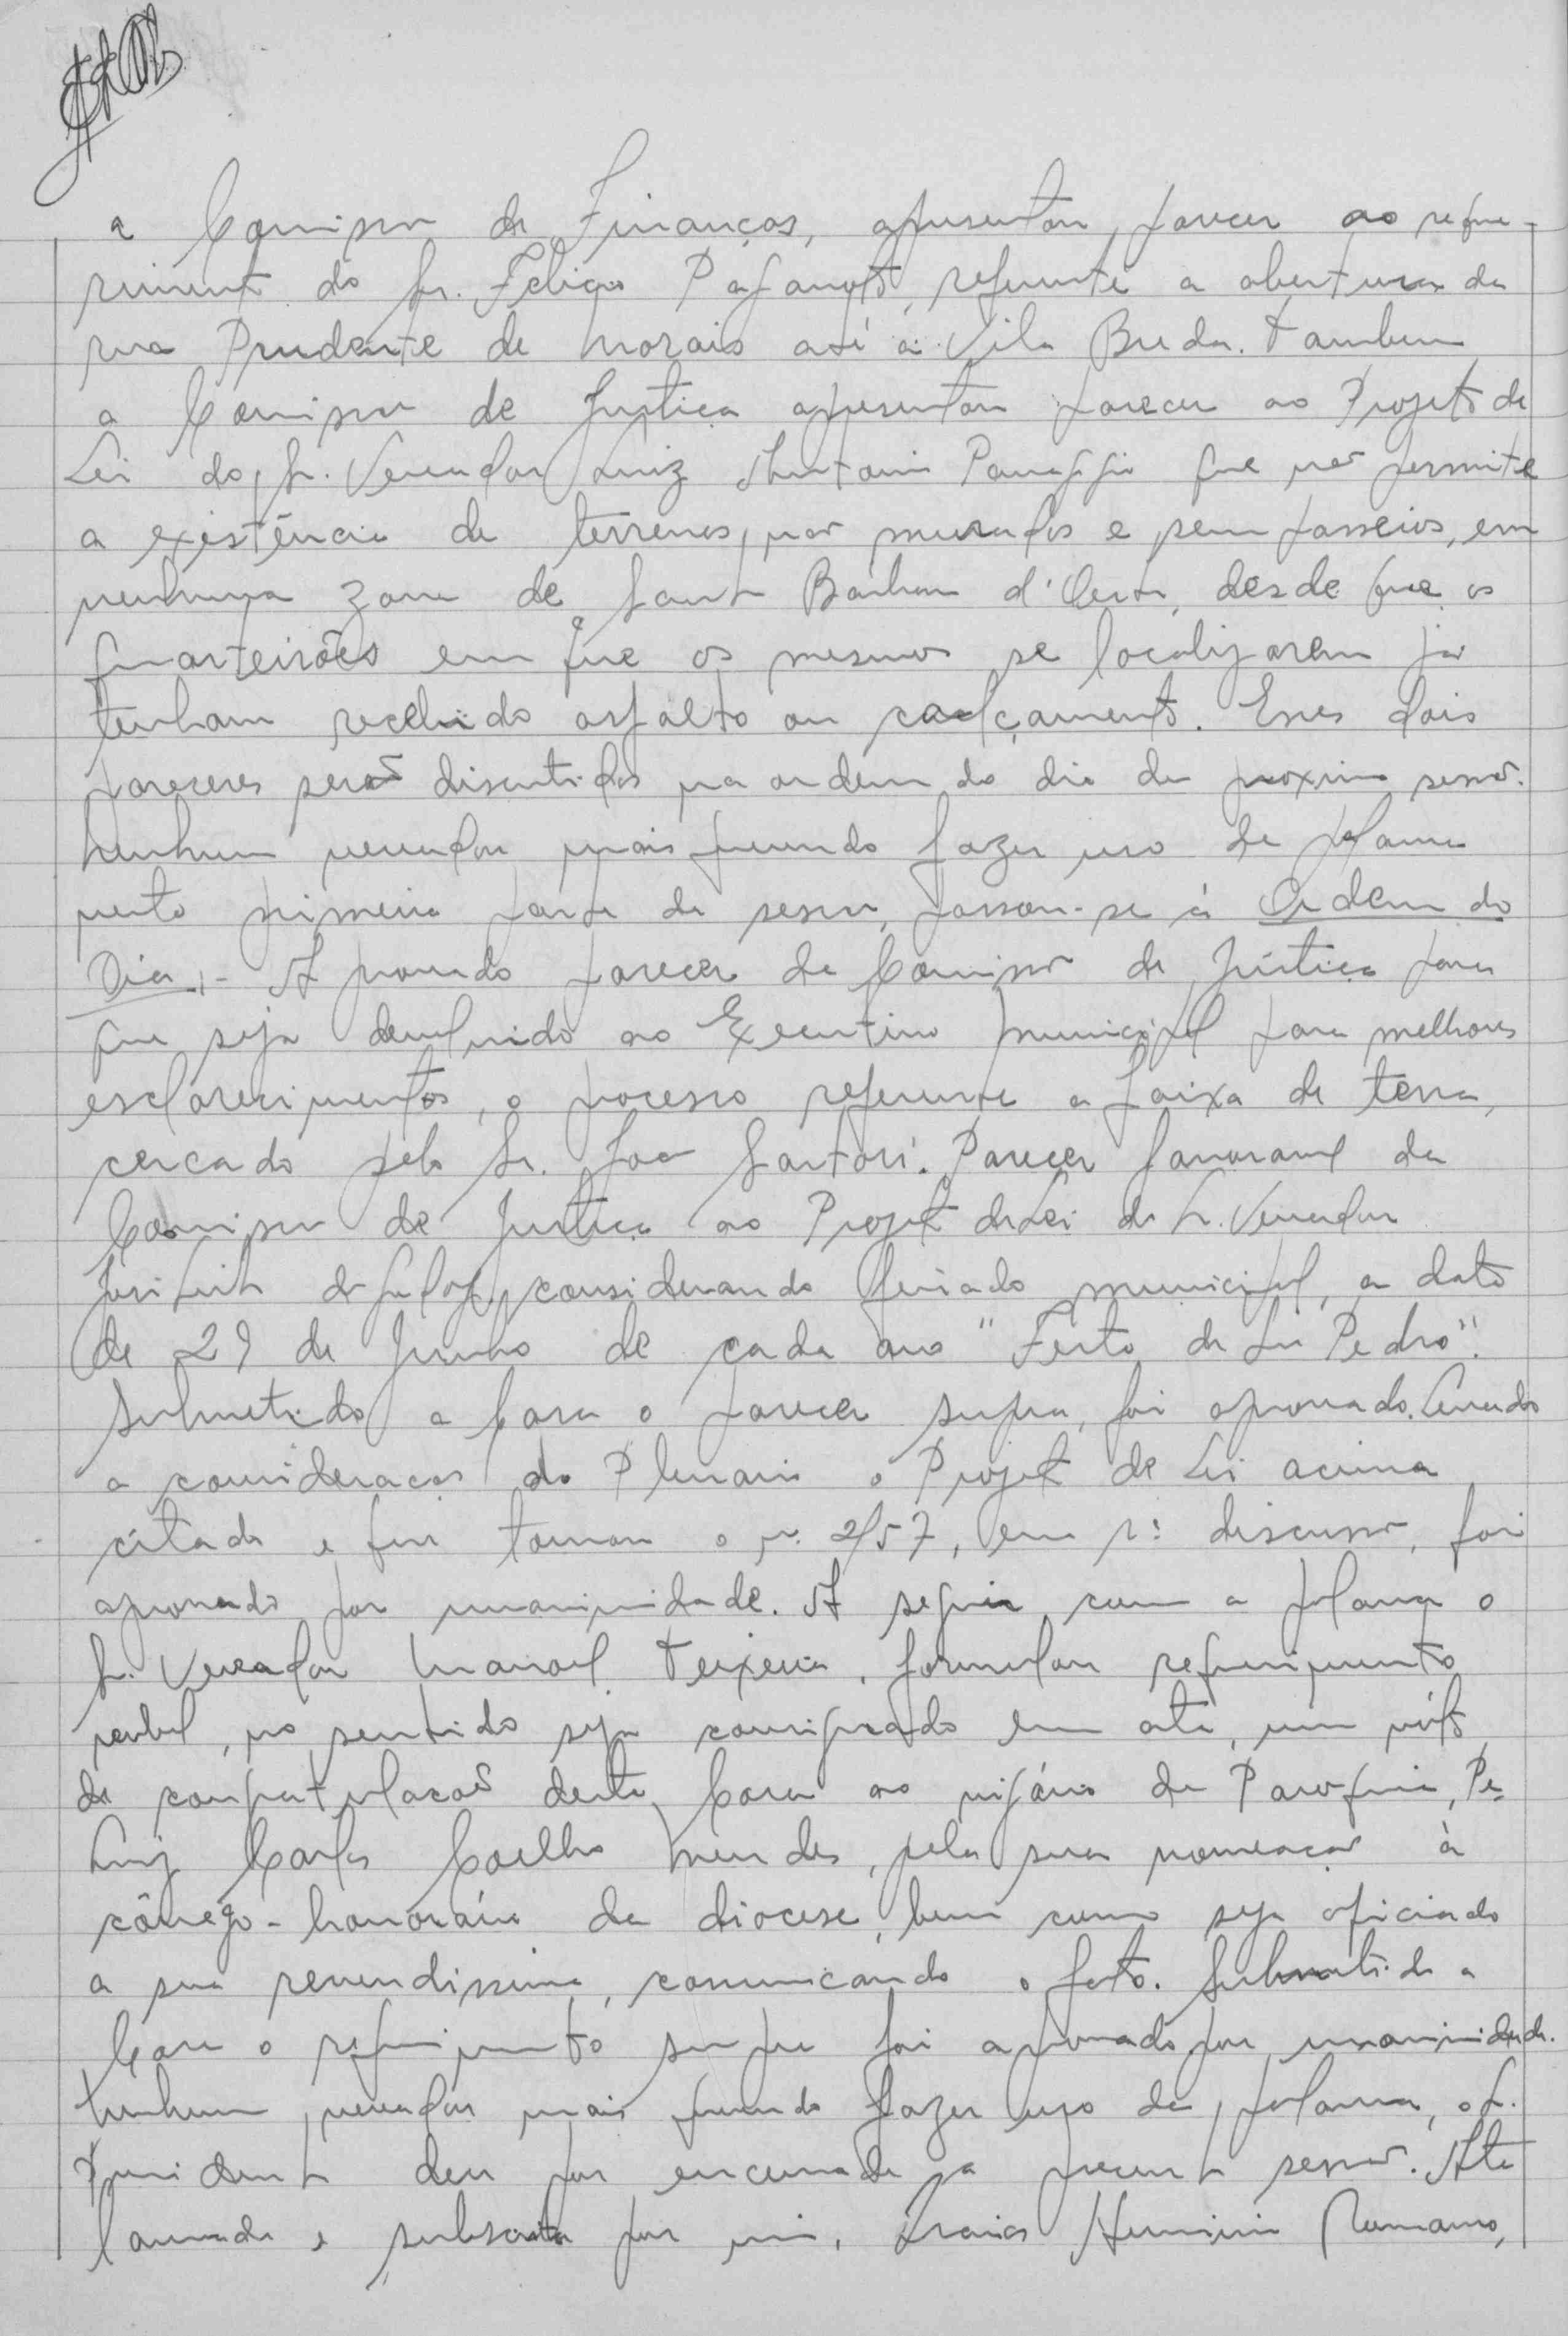 a Comissão de Finanças, apresentou parecer ao reque-
rimento do Sr. Felicio Paganoto, referente a abertura da
rua Prudente de Morais até à Vila Breda. Tambem
a Comissão de Justiça apresentou parecer ao Projeto de
Lei do Sr. Vereador Luiz Antonio Panaggio que não permite
a existência de terrenos, não murados e sem passeios, em
nenhuma zona de Santa Barbara d'Oeste, desde que os
quarteirões em que os mesmos se localizarem já
tenham recebido asfalto ou calçamento. Esses dois
pareceres serão discutidos na ordem do dia da proxima sessão.
Nenhum vereador mais querendo fazer uso da palavra
nesta primeira parte da sessão, passou-se à Ordem do
Dia,- Aprovado parecer da Comissão de Justiça para
que seja devolvido ao Executivo Municipal para melhores
esclarecimentos, o processo referente a faixa de terra,
cercado pelo Sr. João Sartori. Parecer favoravel da
Comissão de Justiça ao Projeto de Lei do Sr. Vereador
considerando feriado municipal, a data
de 29 de Junho de cada ano "Festa de São Pedro".
Submetido a Casa o parecer supra, foi aprovado. Levado
a consideração do Plenario o Projeto de Lei acima
citado e que tomou o n. 2/57, em 1ª discussão, foi
aprovado por unanimidade. A seguir com a palavra o
Sr. Vereador Manoel Teixeira, formulou requerimento
verbal, no sentido seja consignado em ata, um voto
de congratulação desta Casa ao vigário da Paroquia, Pe
Luiz Carlos Coelho Mendes, pela sua nomeação à
cônego-honorário da diocese, bem como seja oficiado
a sua reverendissima, comunicando o fato. Submetido a
Casa o requerimento supra foi aprovado por unanimidade.
Nenhum vereador mais querendo fazer uso da palavra, o Sr.
Presidente deu por encerrada a presente sessão. Ata
lavrada e subscrita por mim, Isaias Herminio Romano,